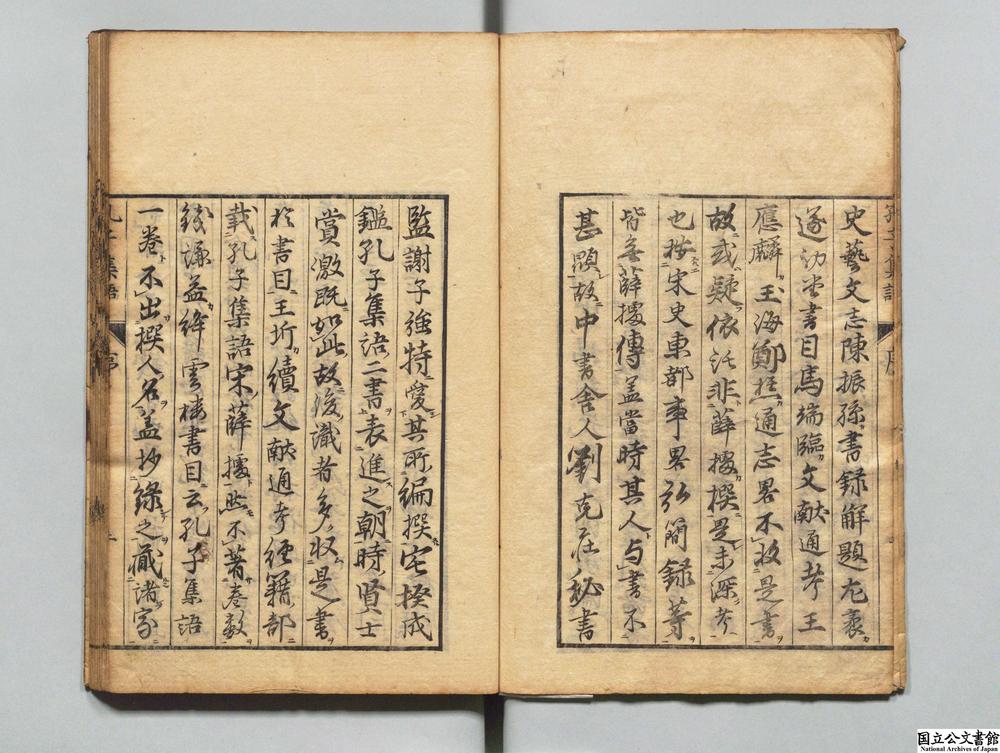 史藝文志陳振孫書録解題尤袤
遂初堂書目馬端臨文献通考王
應麟玉海鄭樵通志畧不收是書
故或疑依託非薛據撰是未深考
也按宋史東都事畧弘簡録等
皆無薛據傳盖當時其人与書不
甚顕故中書舎人劉克庄秘書
監謝子強特愛其所編撰宅揆成
鑑孔子集語二書表進之朝時賢士
賞激既如此故後識者多収是書
於書目王圻續文献通考經籍部
載孔子集語宋薛據然不著巻数
錢謙益絳雲樓書目云孔子集語
一巻不出撰人名盖抄録之藏諸家
孔子集語 序
国立公文書館
National Archives of Japan